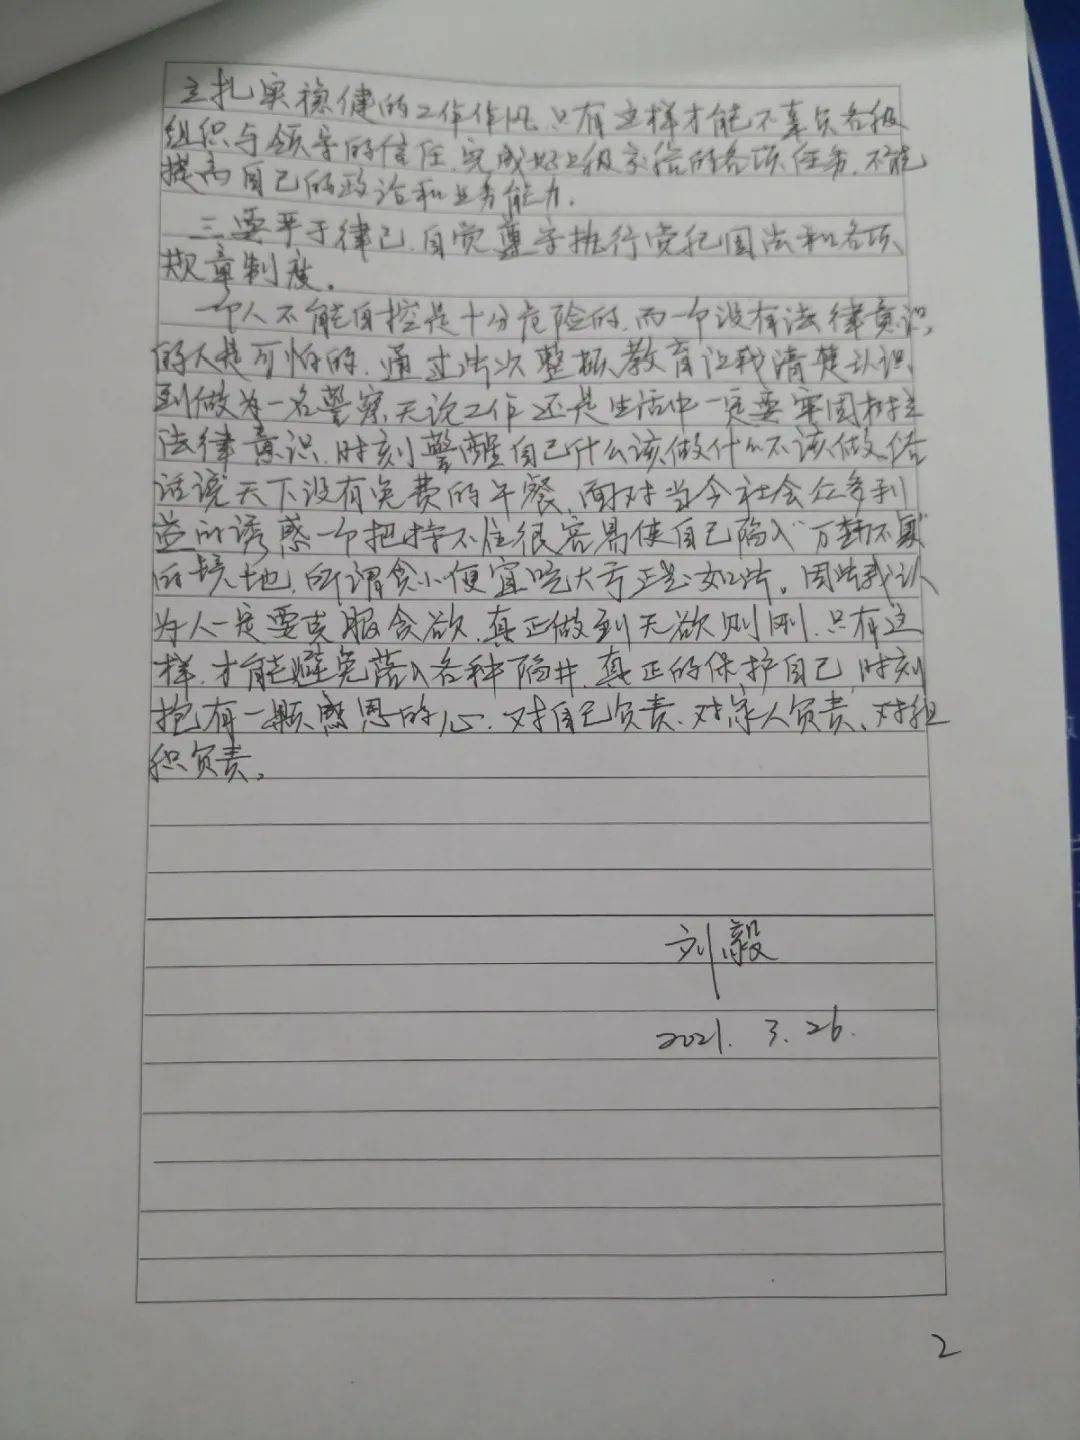 立扎实稳健的工作作风,只有这样才能不辜负各级
组织与领导的信任,完成好上级交给的各项任务,不能
提高自己的政治和业务能力.
三要严于律己,自觉遵守执行党纪国法和各项
规章制度。
一个人不能自控是十分危险的,而一个没有法律意识,
的人是可怕的,通过此次整顿教育让我清楚认识
到做为一名警察无论工作还是生活中一定要牢固树立
法律意识,时刻警醒自己什么该做什么不该做。俗
话说天下没有免费的午餐,面对当今社会众多利
益的诱惑一个把持不住很容易使自己陷入“万劫不复”
的境地,所谓贪小便宜吃大亏正是如此。因此我认
为人一定要克服贪欲,真正做到无欲则刚,只有这
样,才能避免落入各种陷井,真正的保护自己,时刻
抱有一颗感恩的心,对自己负责、对家人负责、对组
织负责。
刘毅
2021. 3. 26.
2